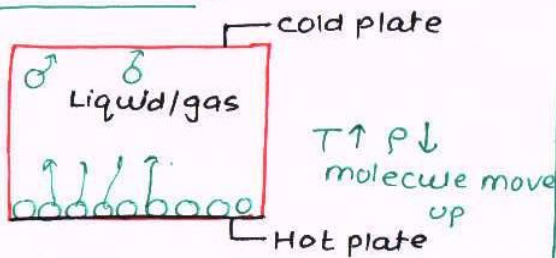 cold plate
Liquid/gas
T↑ ρ↓
molecule move
up
Hot plate